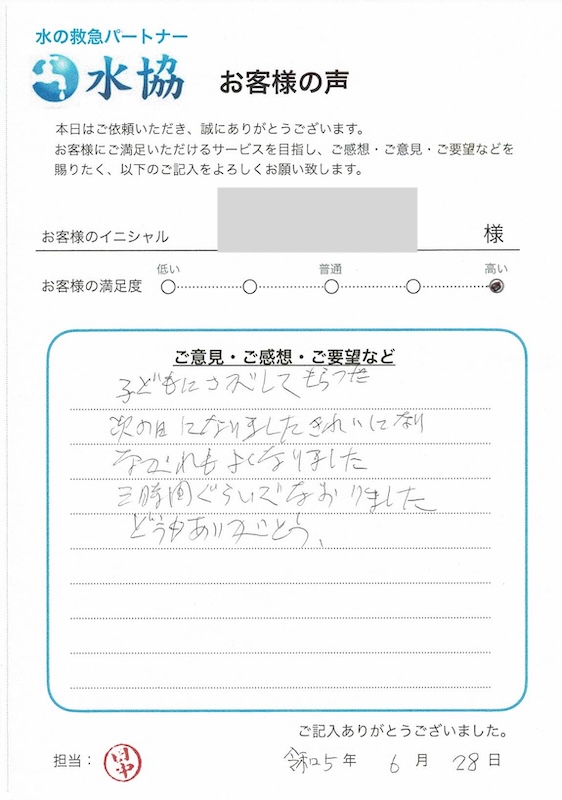 水の救急パートナー
水協
お客様の声
本日はご依頼いただき、誠にありがとうございます。
お客様にご満足いただけるサービスを目指し、ご感想・ご意見・ご要望などを
賜りたく、以下のご記入をよろしくお願い致します。
お客様のイニシャル 様
低い 普通 高い
お客様の満足度
ご意見・ご感想・ご要望など
子どもにさがしてもらった
次の日になりましたきれいになり
ながれもよくなりました
三時間ぐらいでなおりました
どうもありがとう、
ご記入ありがとうございました。
担当： 田中 令和5年 6月 28日